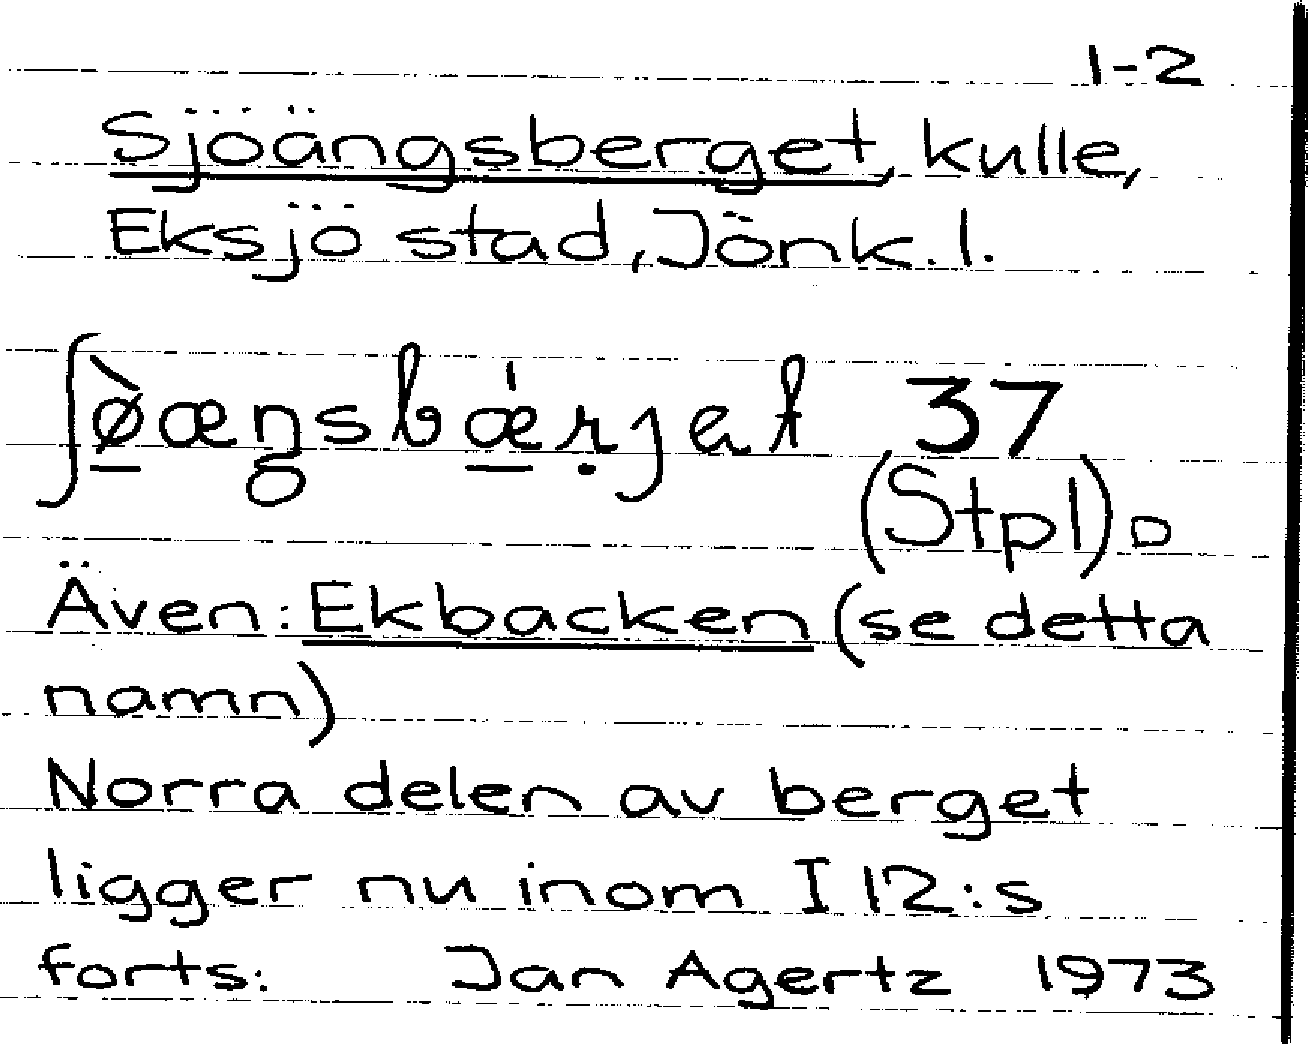 1-2
Sjöängsberget, kulle,
Eksjö stad, Jönk. l.
ʃø̀æŋsbǽrjət 37
(Stpl).
Även: Ekbacken (se detta
namn)
Norra delen av berget
ligger nu inom I 12:s
forts: Jan Agertz 1973